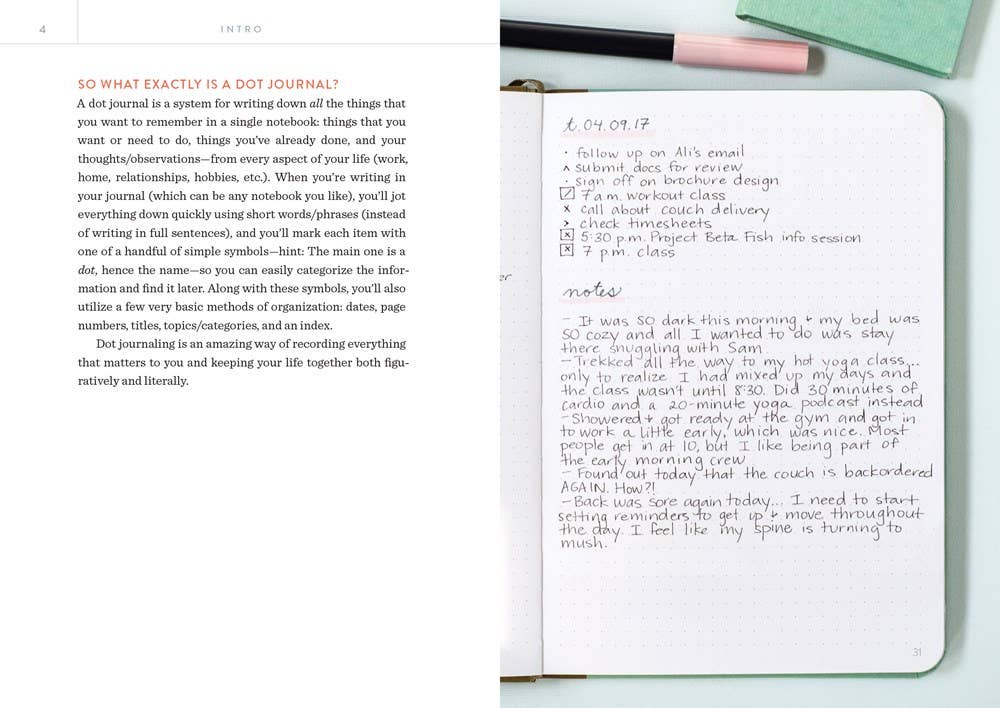 4
INTRO
SO WHAT EXACTLY IS A DOT JOURNAL?
A dot journal is a system for writing down all the things that
you want to remember in a single notebook: things that you
want or need to do, things you've already done, and your
thoughts/observations—from every aspect of your life (work,
home, relationships, hobbies, etc.). When you're writing in
your journal (which can be any notebook you like), you'll jot
everything down quickly using short words/phrases (instead
of writing in full sentences), and you'll mark each item with
one of a handful of simple symbols—hint: The main one is a
dot, hence the name—so you can easily categorize the infor-
mation and find it later. Along with these symbols, you'll also
utilize a few very basic methods of organization: dates, page
numbers, titles, topics/categories, and an index.
Dot journaling is an amazing way of recording everything
that matters to you and keeping your life together both figu-
ratively and literally.
er
t. 04.09.17
· follow up on Ali's email
^ submit docs for review
· sign off on brochure design
☑ 7 a.m. workout class
x call about couch delivery
> check timesheets
☒ 5:30 p.m. Project Beta Fish info session
☒ 7 p.m. class
notes
– It was SO dark this morning + my bed was
SO cozy and all I wanted to do was stay
there snuggling with Sam
– Trekked all the way to my hot yoga class...
only to realize I had mixed up my days and
the class wasn't until 8:30. Did 30 minutes of
cardio and a 20-minute yoga podcast instead
– Showered + got ready at the gym and got in
to work a little early, which was nice. Most
people get in at 10, but I like being part of
the early morning crew
– Found out today that the couch is backordered
AGAIN. How?!
– Back was sore again today... I need to start
setting reminders to get up + move throughout
the day. I feel like my spine is turning to
mush.
31